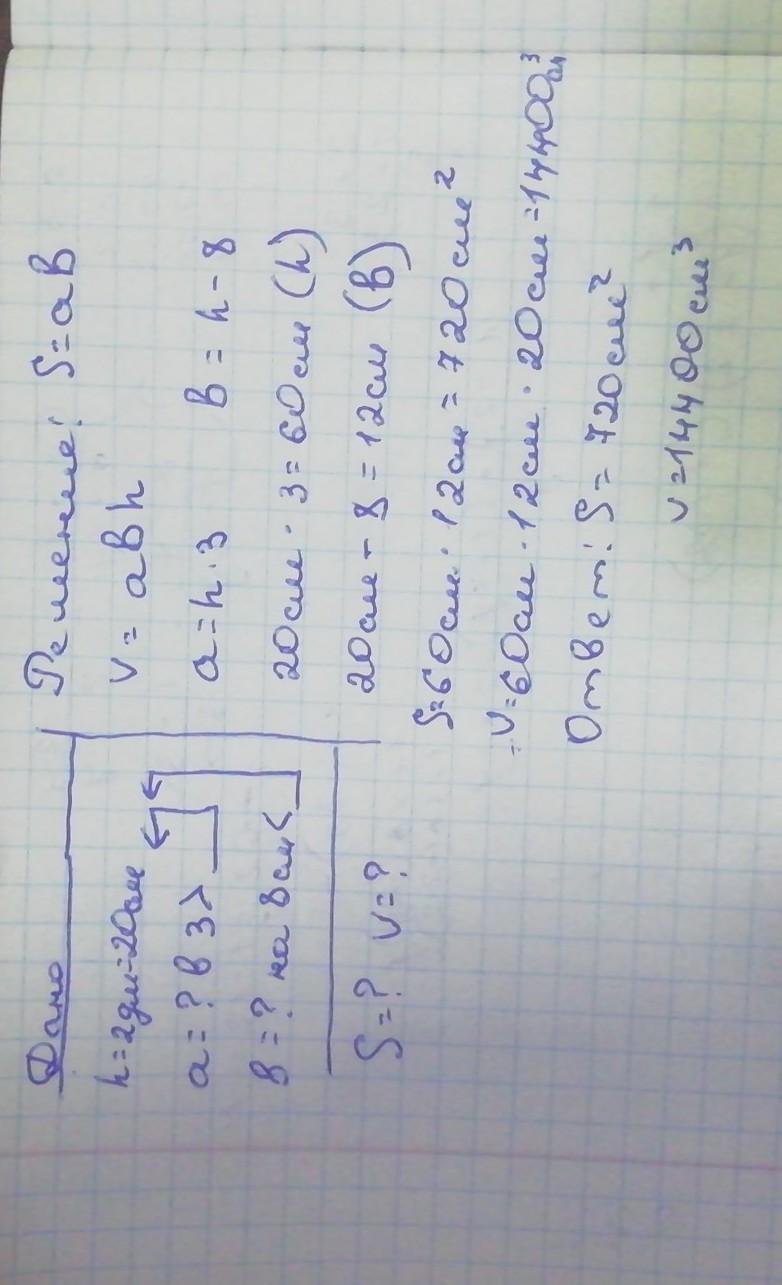 Дано
h=2дм=20см
а=? в 3>
в=? на 8см<
S=? V=?
Решение: S=ав
V= авh
а=h·3 в=h-8
20см·3=60см (h)
20см-8=12см (в)
S=60см·12см=720см²
V=60см·12см·20см=14400см³
Ответ: S=720см²
V=14400см³